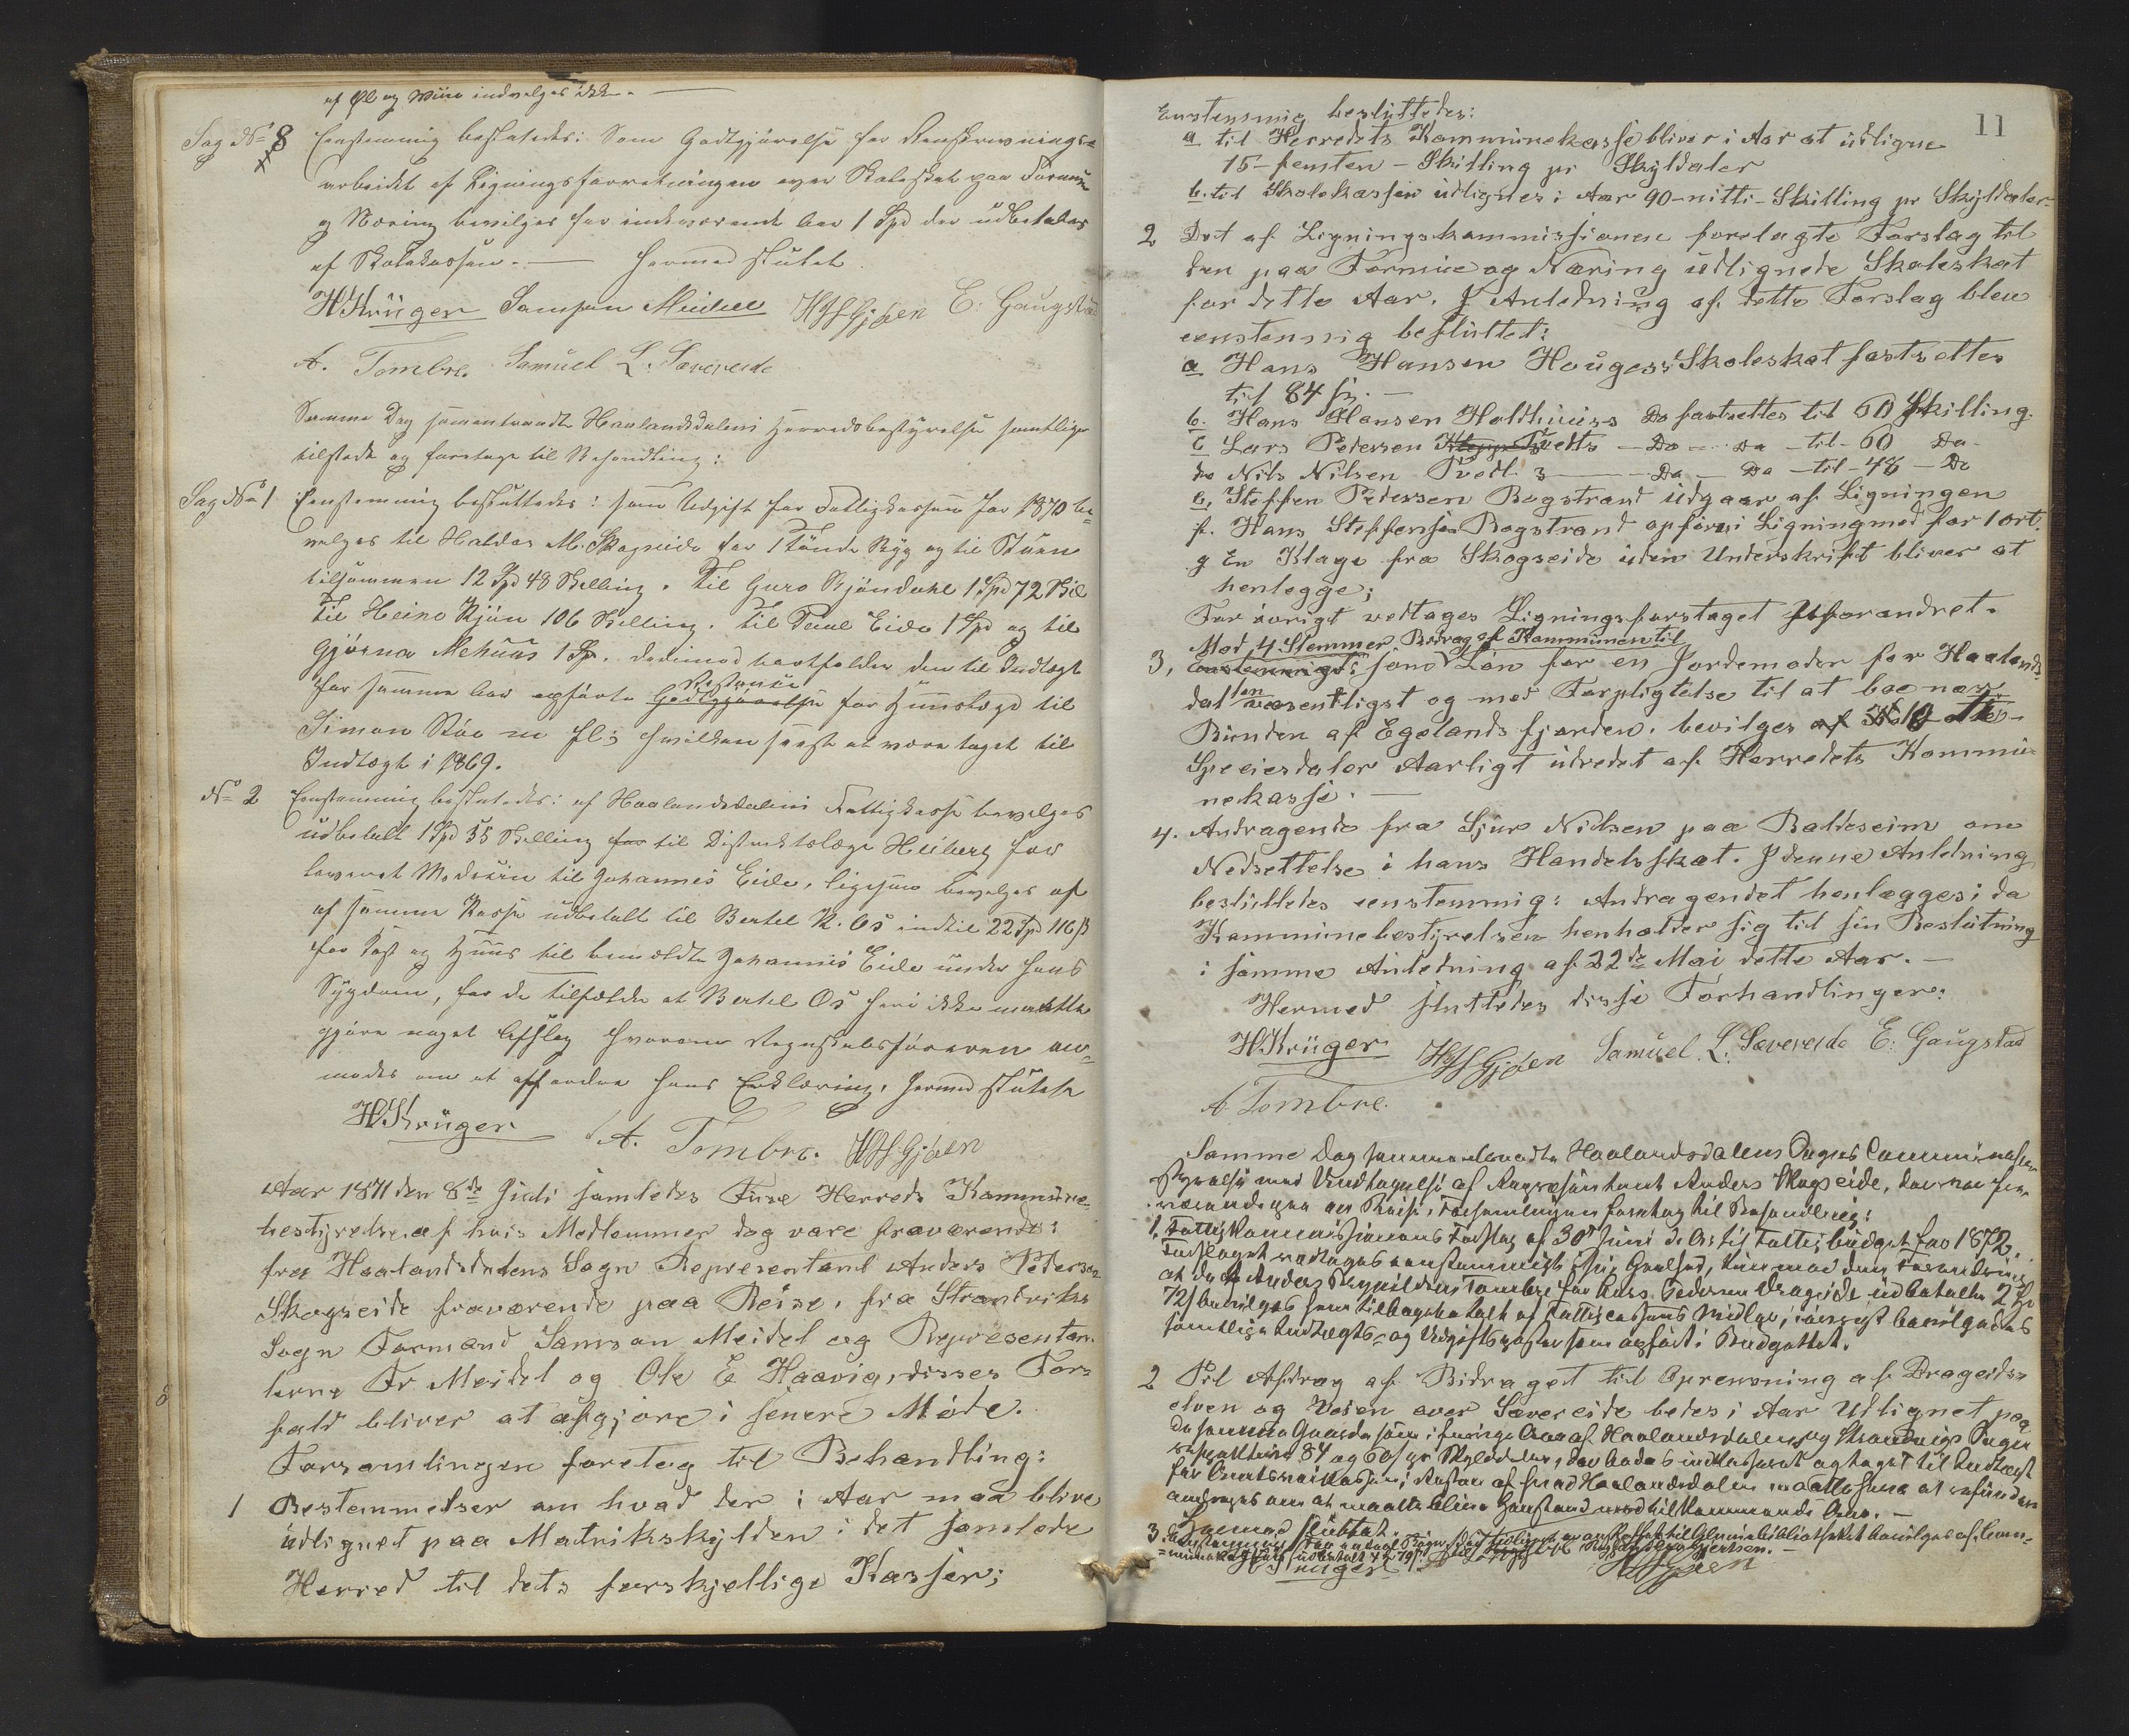 af Øl og Viin indvilges ikke.
Sag No 8 Eenstemmig besluttedes: Som Godtgjörelse for Renskrivnings-
arbeidet af Ligningsforretningen over Skoleskat paa Formue
og Næring bevilges for indeværende Aar 1 Spd der udbetales
af Skolekassen. — Hermed sluttet
HKrüger Samson Meidell HHGjöen E. Gaugstad
A. Tombre. Samuel L. Sævereide
Samme Dag sammentraadte Haalandsdalens Herredsbestyrelse samtlige
tilstede og foretoge til Behandling:
Sag No 1 Eenstemmig besluttedes: som Udgift for Fattigkassen for 1870 be-
vilges til Haldor M. Skogseide for 1 Tønde Byg og til
tilsammen 12 Spd 48 Skilling. Til Guro Gjöndahl 1 Spd 72 Skil
til Heine 106 Skilling. Til Paul Eide 1 Spd og til
Gjörina Mehuus 1 Sp. derimod bortfalder den til Indtægt
for samme Aar opførte Restance Godtgjörelse for Huuslægd til
Simon hvilken sees at være taget til
Indtægt i 1869.
No 2 Eenstemmig besluttedes: af Haalandsdalens Fattigkasse bevilges
udbetalt 1 Spd 55 Skilling for til Distriktslæge Heiberg for
leveret Medicin til Johannes Eide, ligesom bevilges af
af samme Kasse udbetalt til Bertel K. Os indtil 22 Spd 116 ß
for Kost og Huus til bemældte Johannes Eide under hans
Sygdom, for de tilfælde at Bertel Os heri ikke maatte
gjöre noget Afslag hvorom Regnskabsføreren an-
modes om at affordre hans Erklæring. Hermed sluttet
HKrüger A. Tombre. HHGjöen
Aar 1871 den 8de Juli samledes Fuse Herreds Kommune-
bestyrelse, af hvis Medlemmer dog vare fraværende:
fra Haalandsdalens Sogn Representant Anders Petersen
Skogseide fraværende paa Reise, fra Strandviks
Sogn Formand Samson Meidel og Representan-
terne Fr Meidel og Ole E Haavig, disses For-
fald bliver at afgjöre i senere Möde.
Forsamlingen foretog til Behandling:
1 Bestemmelser om hvad der i Aar maa blive
udlignet paa Matrikskylden i det samlede
Herred til dets forskjellige Kasser;
11
Enstemmig besluttedes:
a til Herredets Kommunekasse bliver i Aar at udligne
15 - femten - Skilling pr Skylddaler
b. til Skolekassen udlignes i Aar 90 - nitti - Skilling pr Skylddaler
2 Det af Ligningskommissionen forelagte Forslag til
den paa Formue og Næring udlignede Skoleskat
for dette Aar. I Anledning af dette Forslag blev
eenstemmig besluttet:
a Hans Hansen Houges Skoleskat fastsettes
til 84 ß. —
b. Hans Hansen Holdhuus Do fastsettes til 60 Skilling.
c Lars Pedersen Tvedts — Do — Do — til - 60 Do -
d Nils Nilsen Tvedt 3 — Do — Do — til - 48 — Do
e, Steffen Pedersen Bogstrand udgaar af Ligningen
f. Hans Steffensen Bogstrand opføres i Ligning med for 1 ort.
g En Klage fra Skogseide uden Underskrift bliver at
henlegge;
For övrigt vedtages Ligningsforslaget uforandret.
Mod 4 Stemmer, Bidrag af Kommunen til
3, eenstemmigt: som Lön for en Jordemoder for Haalands-
dalen væsentligst og med Forpligtelse til at boe nær
Bunden af Egelandsfjorden. bevilges af
Speciesdaler Aarligt udredet af Herredets Kommu-
nekasse. —
4. Andragende fra Sjur Nilsen paa Baldesheim om
Nedsettelse i hans Handelsskat. I denne Anledning
besluttedes eenstemmig: Andragendet henlægges; da
Kommunebestyrelsen henholder sig til sin Beslutning
i samme Anledning af 22de Mai dette Aar. —
Hermed sluttedes disse Forhandlinger:
HKrüger HHGjöen Samuel L. Sævereide E. Gaugstad
A. Tombre.
Samme Dag sammentraadte Haalandsdalens Sogns Communebe-
styrelse med Undtagelse af Representant Anders Skogseide, der var fra-
værende paa en Reise, Forsamlingen foretog til Behandling:
1. Fattigkommissionens Forslag af 30te Juni d. A. til Fattigbudget for 1872.
Forslaget vedtages eenstemmigt i sin Heelhed, kun med den Forandring
at de af Anders Tombre for Lars Pedersen Drageide udbetalte 2 Sp
72 ß bevilges ham tilbagebetalt af Fattigkassens Midler, iövrigt bevilgedes
samtlige Indtægts- og Udgiftsposter som opfört i Budgettet.
2 Til Afdrag af Bidraget til Oprensning af Drageids-
elven og Veien over Sævereide bedes i Aar Udlignet paa
de samme Gaarde som i forrige Aar af Haalandsdalens og Strandvigs Sogn
respektive 84 og 60 ß pr Skylddaler, der bedes indkasseret og taget til Indtægt
for i af hvad Haalandsdalen maatte have at refundere
andrages om at maatte blive Henstand med til kommende Aar. —
Hermed sluttet.
3. Eenstemmig til Almuebibliotheket bevilges af Com-
munekassen udbetalt 4 Sp 79 ß
HKrüger HHGjöen